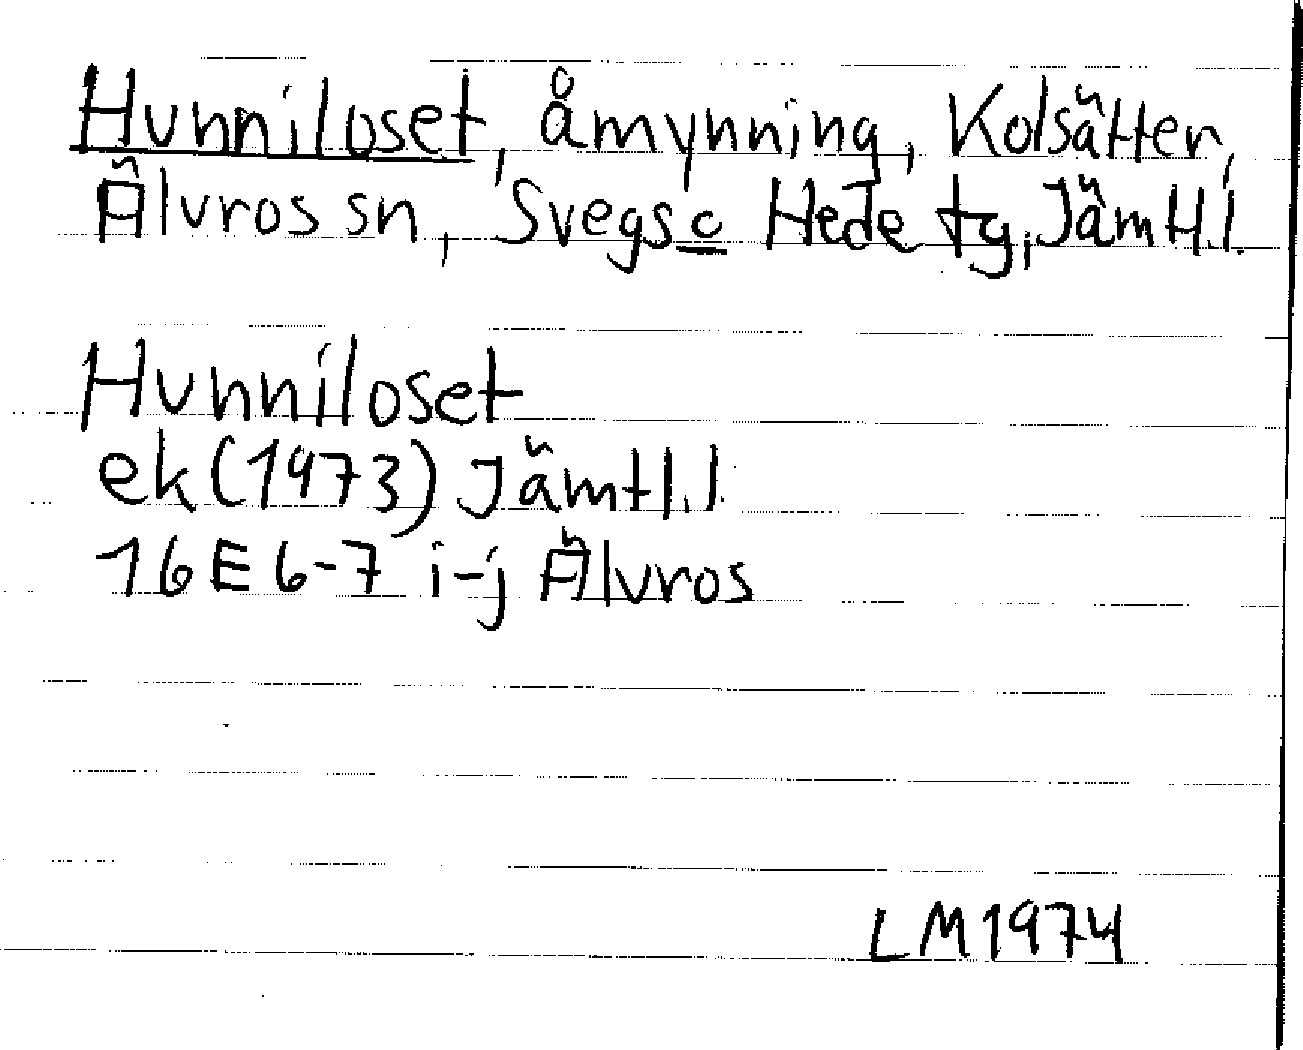 Hunniloset, åmynning, Kolsätter,
Älvros sn, Svegs o Hede tg, Jämtl.l.
Hunniloset
ek (1973) Jämtl.l.
16E 6-7 i-j Älvros
LM 1974